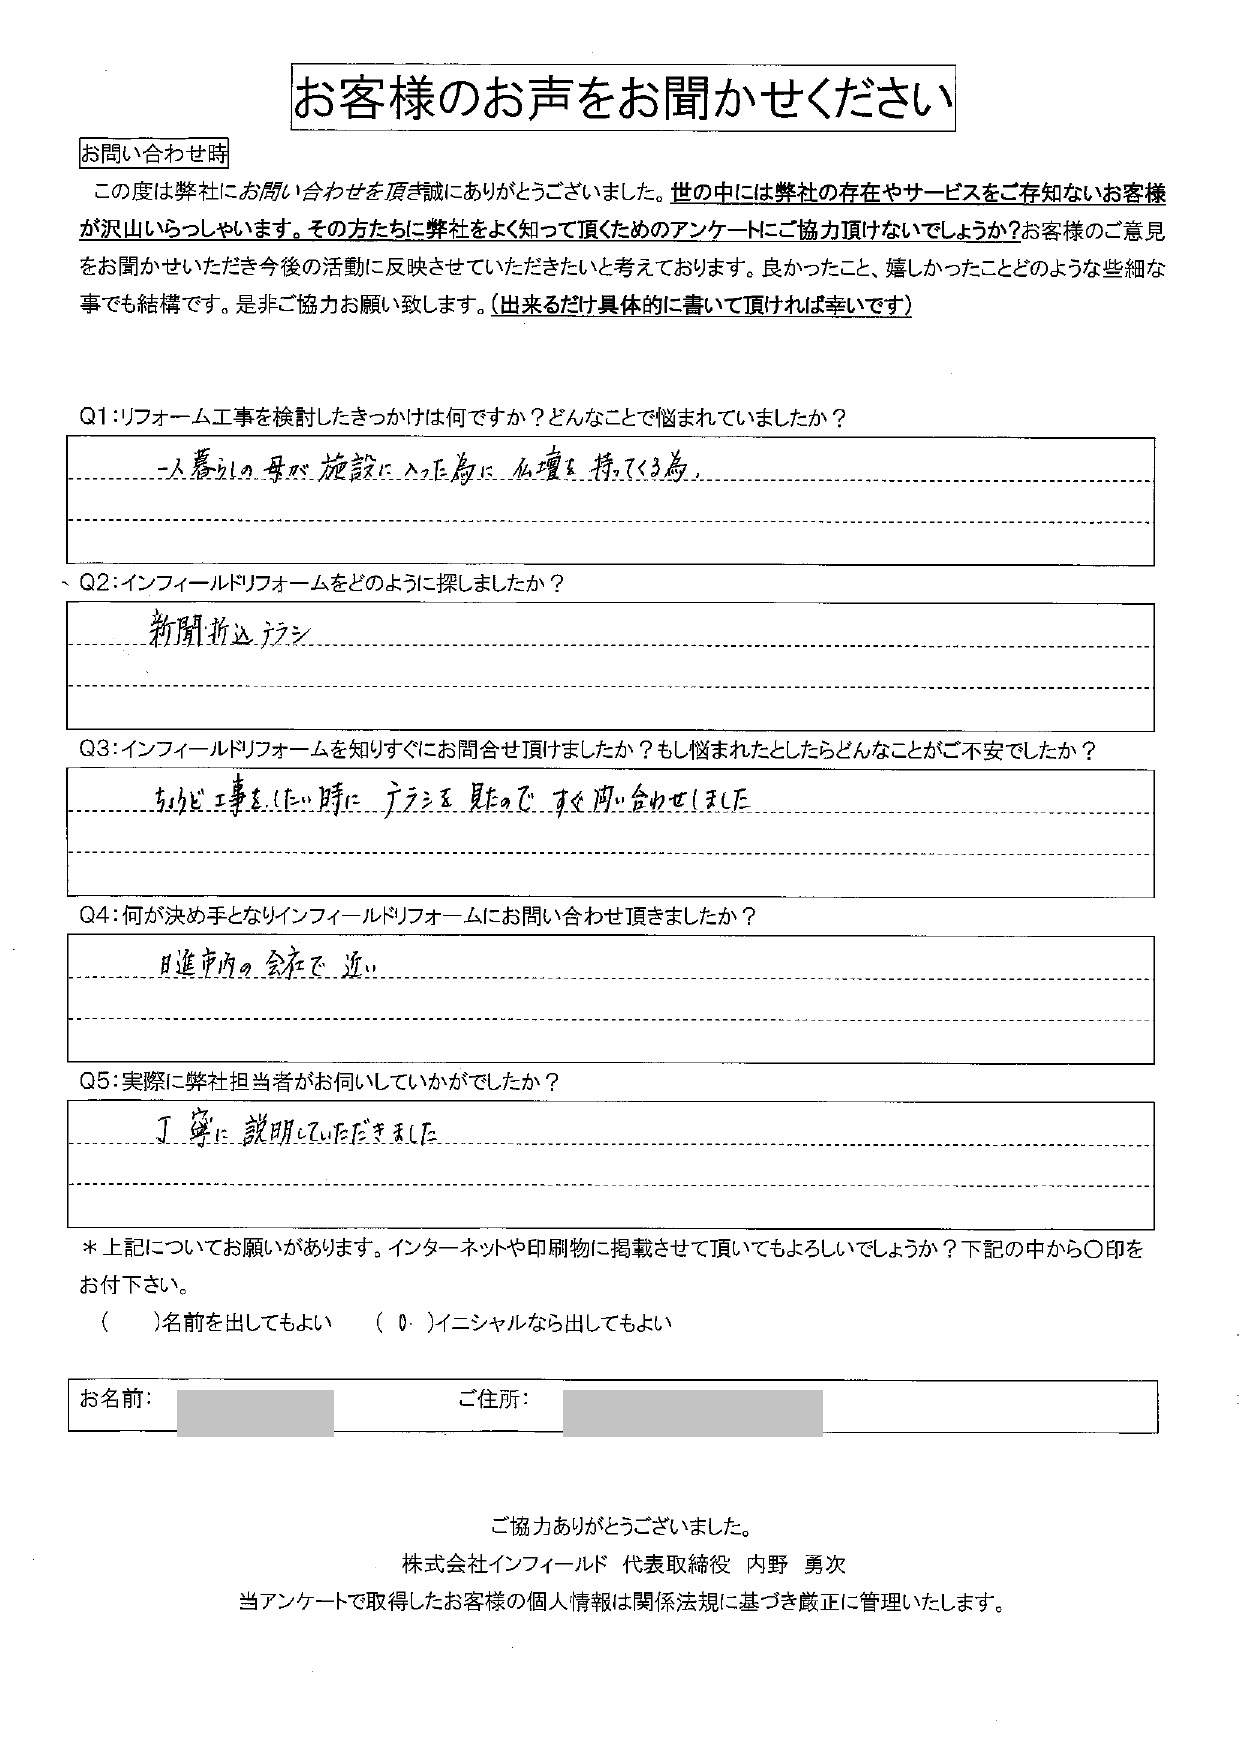 お客様のお声をお聞かせください
お問い合わせ時
この度は弊社にお問い合わせを頂き誠にありがとうございました。世の中には弊社の存在やサービスをご存知ないお客様
が沢山いらっしゃいます。その方たちに弊社をよく知って頂くためのアンケートにご協力頂けないでしょうか?お客様のご意見
をお聞かせいただき今後の活動に反映させていただきたいと考えております。良かったこと、嬉しかったことどのような些細な
事でも結構です。是非ご協力お願い致します。(出来るだけ具体的に書いて頂ければ幸いです)
Q1:リフォーム工事を検討したきっかけは何ですか?どんなことで悩まれていましたか?
一人暮らしの母が施設に入った為に仏壇を持ってくる為.
Q2:インフィールドリフォームをどのように探しましたか?
新聞折込チラシ
Q3:インフィールドリフォームを知りすぐにお問合せ頂けましたか?もし悩まれたとしたらどんなことがご不安でしたか?
ちょうど工事をしたい時にチラシを見たのですぐ問い合わせしました
Q4:何が決め手となりインフィールドリフォームにお問い合わせ頂きましたか?
日進市内の会社で近い
Q5:実際に弊社担当者がお伺いしていかがでしたか?
丁寧に説明していただきました
*上記についてお願いがあります。インターネットや印刷物に掲載させて頂いてもよろしいでしょうか?下記の中から〇印を
お付下さい。
(　　)名前を出してもよい　(　0　)イニシャルなら出してもよい
お名前:　ご住所:
ご協力ありがとうございました。
株式会社インフィールド 代表取締役 内野 勇次
当アンケートで取得したお客様の個人情報は関係法規に基づき厳正に管理いたします。